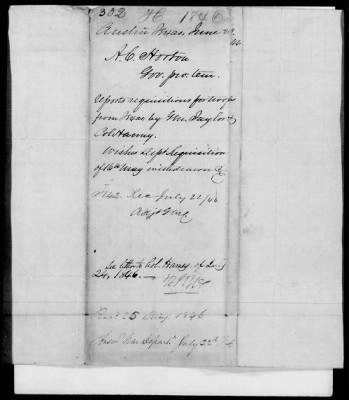 302 H 1846
Austin Texas, June 
A. C. Horton
Gov. pro. tem.
reports requisitions for troops
from Texas by Gen. Taylor &
Col Harney.
Wishes Dept. Requisition
of 16th May withdrawn &c
H 42. Rec July 22/46
Adjt Genl
See letter to Col. Harney, of
24, 1846.
Rec 25 1846
War Depart. July 22d